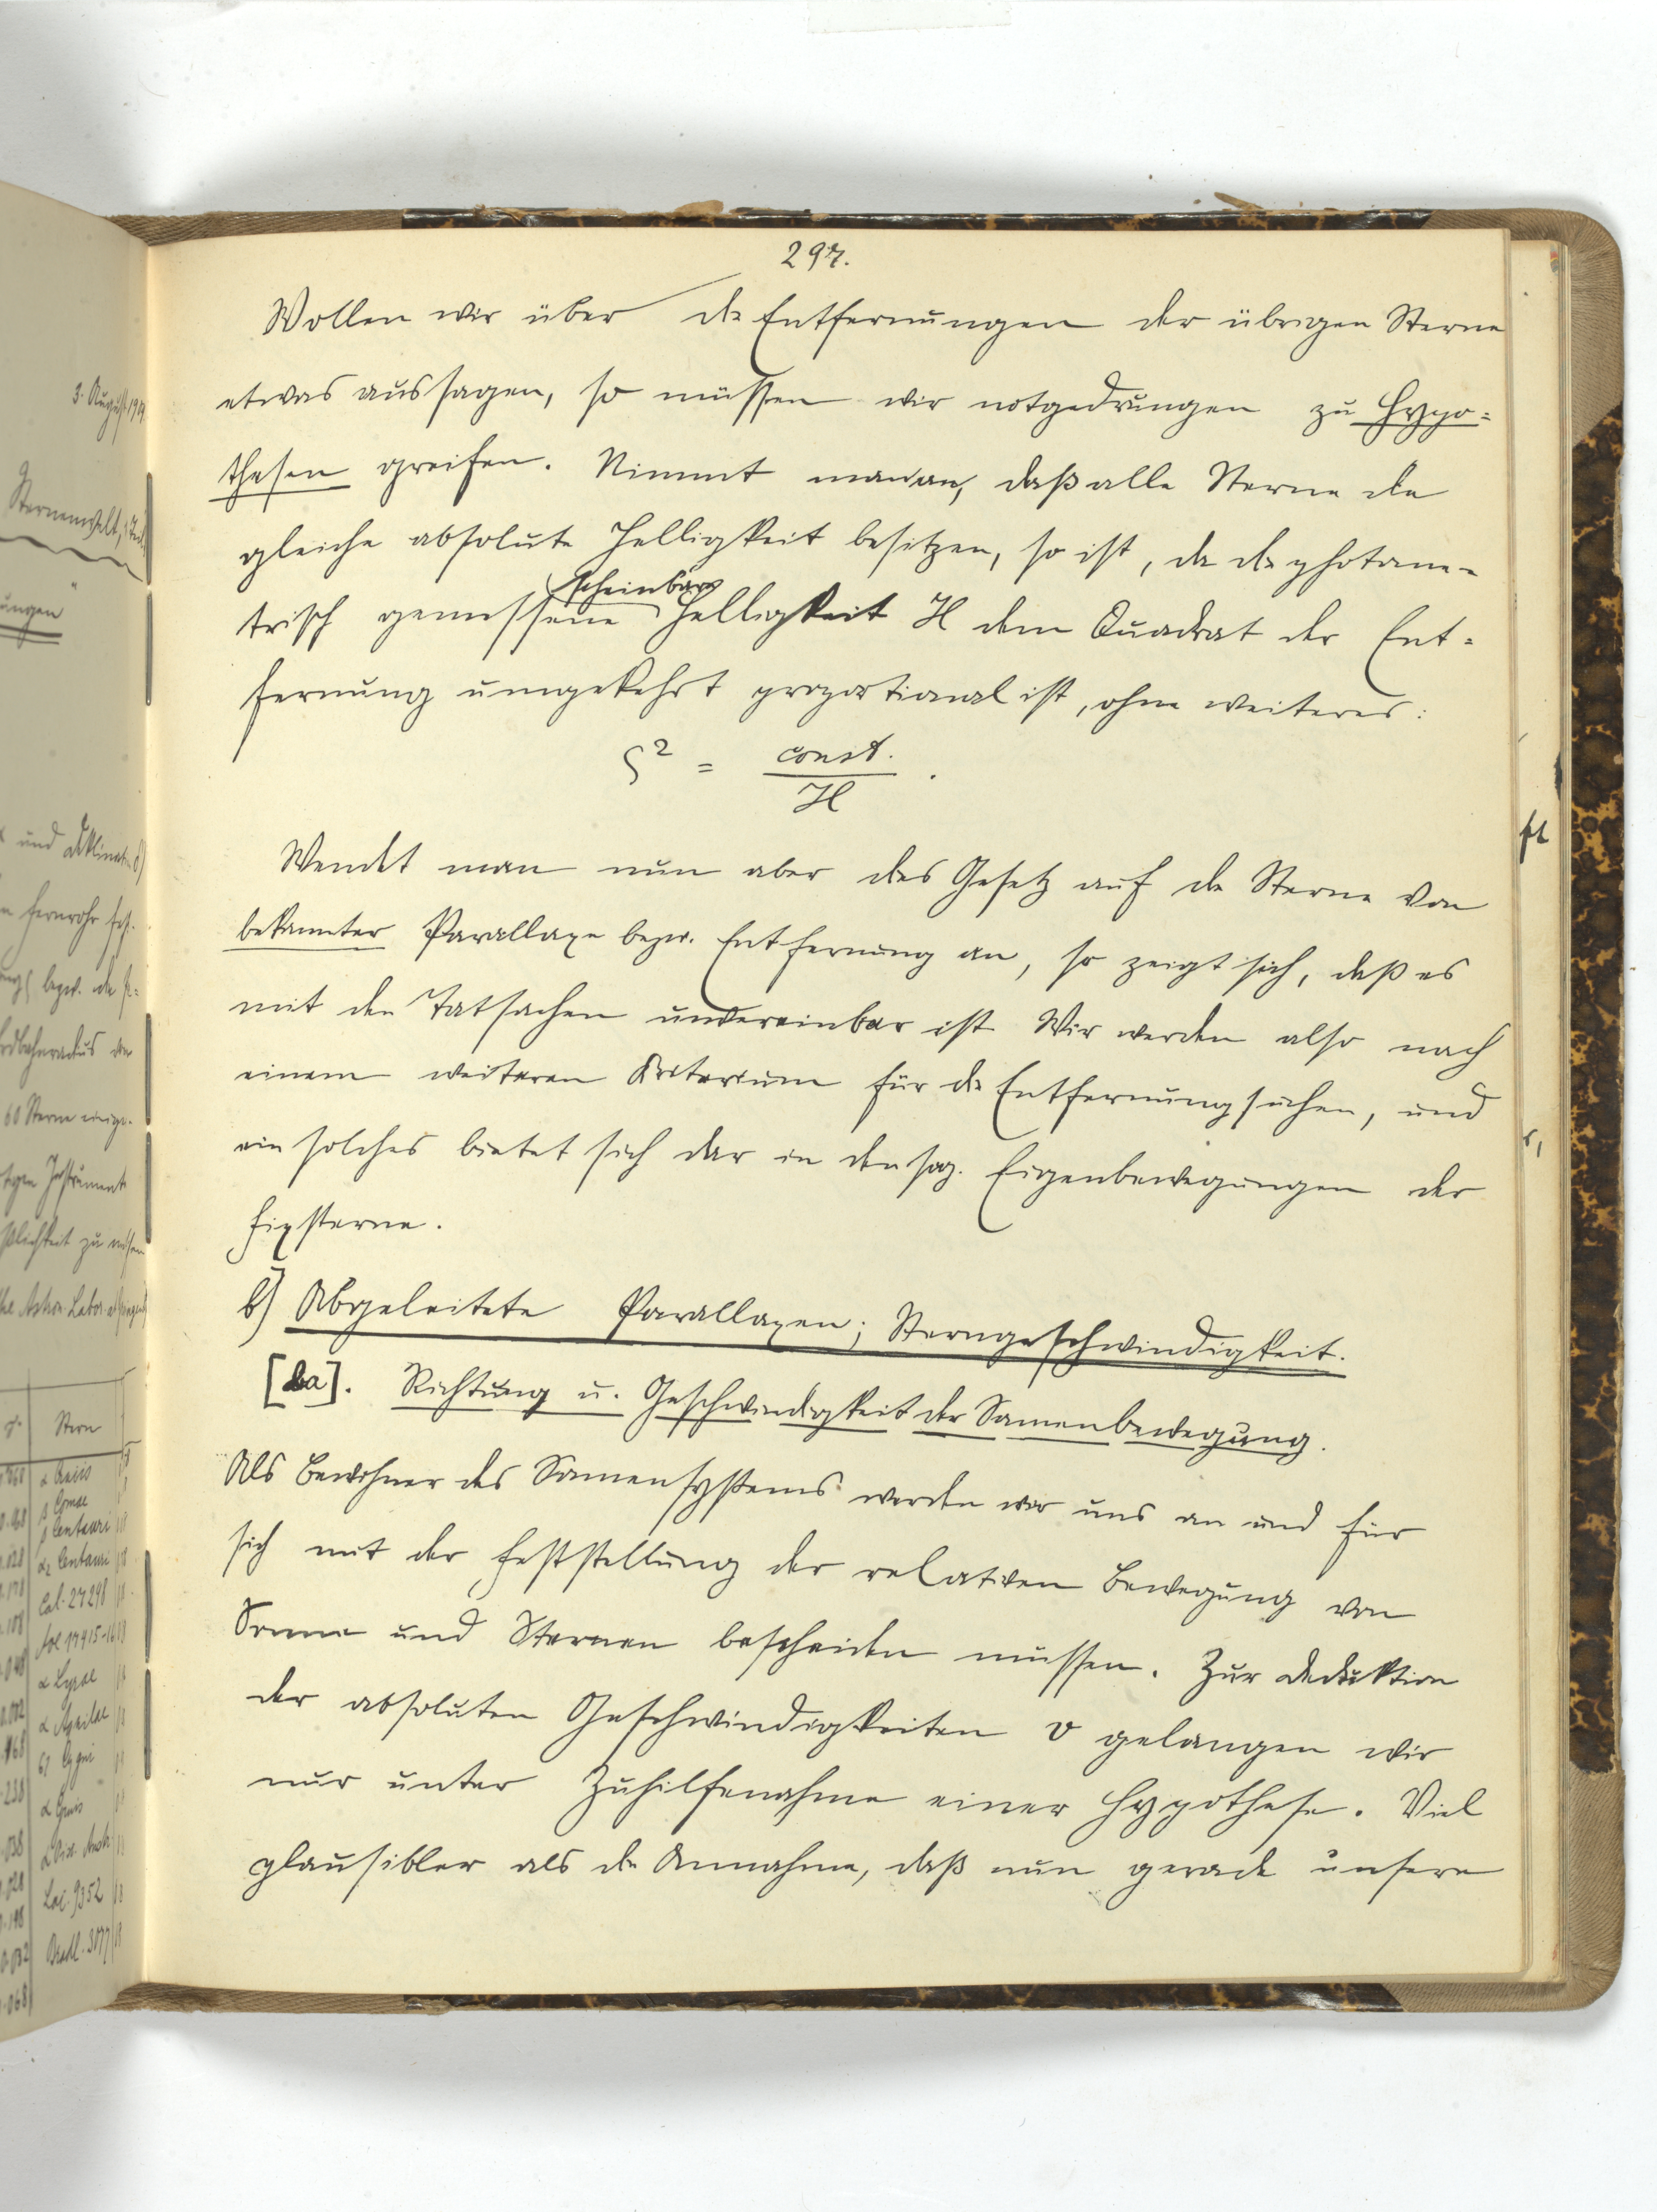 297.
Wollen wir über die Entfernungen der übrigen Sterne
etwas aussagen, so müssen wir notgedrungen zu Hypo=
thesen greifen. Nimmt man an, daß alle Sterne die
gleiche absolute Helligkeit besitzen, so ist, da die photome-
scheinbare
trisch gemessene Helligkeit H dem Quadrat der Ent=
fernung umgekehrt proportional ist, ohne weiteres:
ς² = const. / H .
Wendet man nun aber das Gesetz auf die Sterne von
bekannter Parallaxe bezw. Entfernung an, so zeigt sich, daß es
mit den Tatsachen unvereinbar ist. Wir werden also nach
einem weiteren Kriterium für die Entfernung suchen, und
ein solches bietet sich dar in den sog. Eigenbewegungen der
Fixsterne.
b) Abgeleitete Parallaxen; Sterngeschwindigkeit.
[ba]. Richtung u. Geschwindigkeit der Sonnenbewegung.
Als Bewohner des Sonnensystems werden wir uns an und für
sich mit der Feststellung der relativen Bewegung von
Sonne und Sternen bescheiden müssen. Zur Deduktion
der absoluten Geschwindigkeiten v gelangen wir
nur unter Zuhilfenahme einer Hypothese. Viel
plausibler als die Annahme, daß nun gerade unsere
3. August
Sternenwelt,
ungen"
und Deklinat. δ)
Fernrohr
bezw. die
60 Sterne
Instrumente
zu
Astron. Labor.
Stern
β Comae
β Centauri
α₂ Centauri
Lal. 27298
α Lyrae
α Aquilae
61 Cygni
α Gruis
Lac. 9352
Bradl. 3077